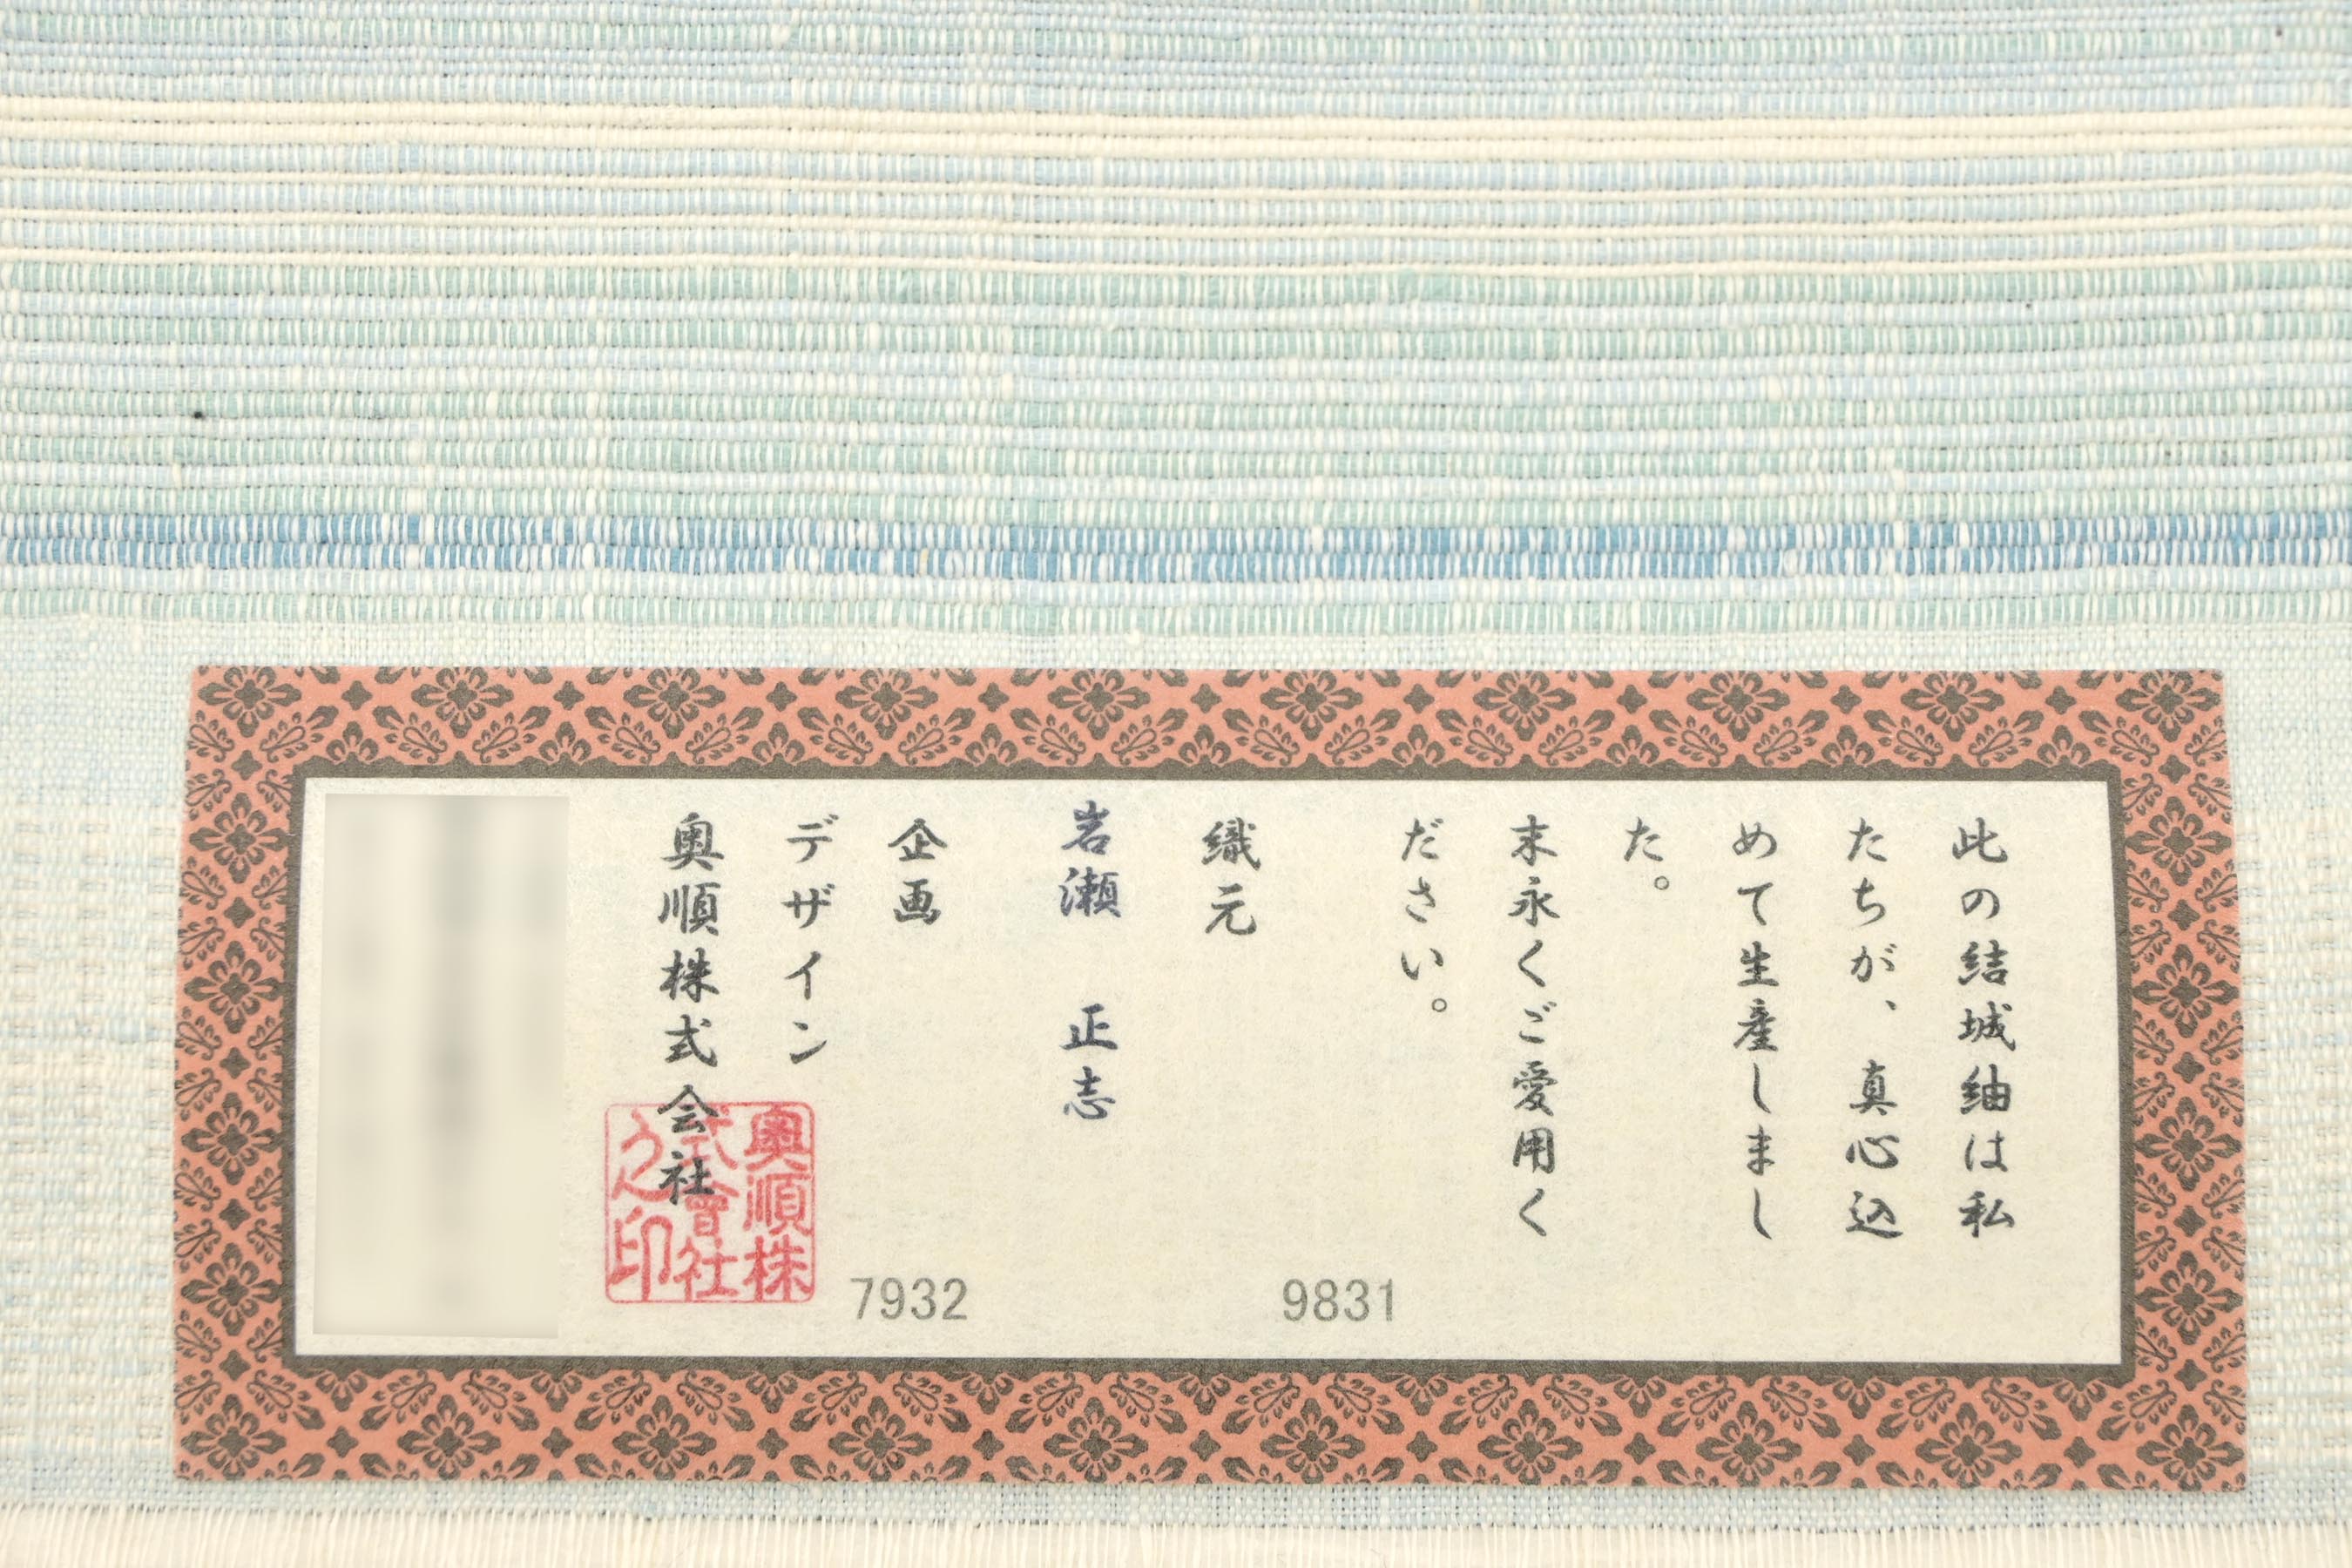 此の結城紬は私
たちが、真心込
めて生産しまし
た。
末永くご愛用く
ださい。
織元
岩瀬 正志
企画
デザイン
奥順株式会社
奥順株
式會社
之印
9831
7932